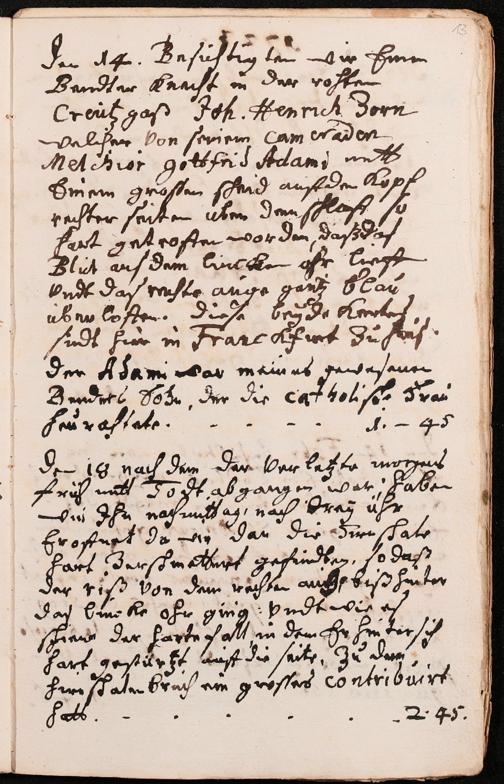 Den 14. Besichtigten wir Einen
Bender Knecht in der rohten
Creutzgaß Joh. Henrich Zorn
welcher von seinem Cameraden
Melchior Gottfrid Adami mitt
Einem grossen scheid auf den Kopf
rechter seiten uben dem schlaff so
hart getroffen worden, daß das
Blut aus dem lincken ohr lieff
undt das rechte auge gantz blau
uberloffen. diese beyde Kerles
sindt hier in Franckfurt zu haus.
der Adami war meines gewesenen
Benders Sohn, der die catholische Frau
heurahtete. - - - - 1. - 45
Den 18 nach dem der Verletzte morgens
früh mitt Todt abgangen war, haben
wir Ihn nachmittag nach drey uhr
Eroffnet da wir dan die Hirnshale
hart Zershmettert gefunden, so daß
der riß von dem rechten aug biß hinter
das lincke ohr ging: undt wie es
schiene der harte fall in dem Er hintersich
hart gestürtzt auf die seite, zu dem
hirnshalenbruch ein grosses contribuirt
hatt. - - - - 2. 45.